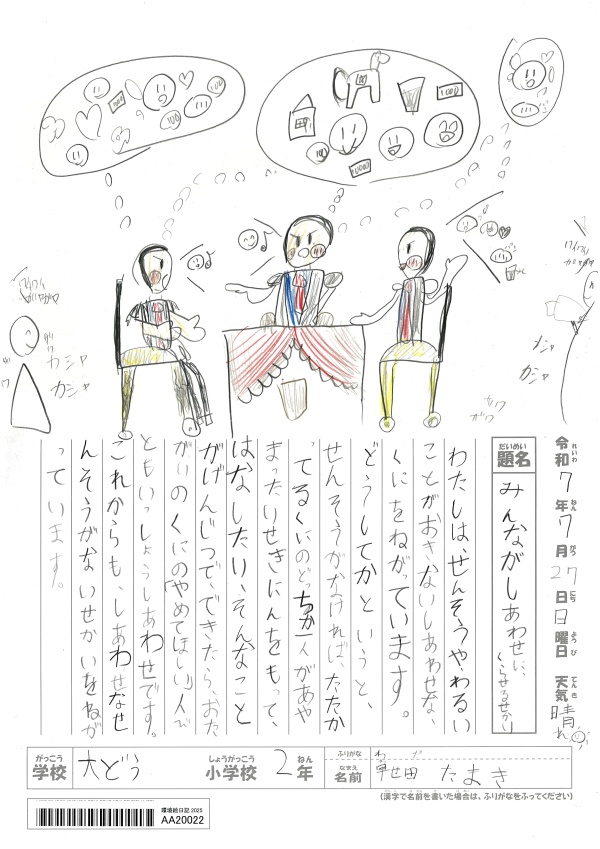 ワイワイ
ガヤガヤ
ザワ
ザワ
カシャ
カシャ
100
100
100
1000
10000
ワイワイ
ガヤガヤ
カシャ
カシャ
ザワ
ザワ
令和7年7月27日日曜日 天気 晴れ
れいわ ねん がつ にち ようび てんき
だいめい
題名 みんながしあわせに、
くらせるせかい
わたしは、せんそうや、わるい
ことがおきないしあわせな、
くにをねがっています。
どうしてかというと、
せんそうがなければ、たたか
ってるくにのどっちか一人があや
まったいせきにんをもって、
はなしたり、そんなこと
がげんじつで、できたら、おた
がいのくにの「やめてほしい」人び
ともいっしょうしあわせです。
これからも、しあわせなせ
んそうがないせかいをねが
っています。
がっこう
学校 大どう
しょうがっこう ねん
小学校 2年
ふりがな
なまえ
名前 田 たまき
(漢字で名前を書いた場合は、ふりがなをふってください)
環境絵日記 2025
AA20022